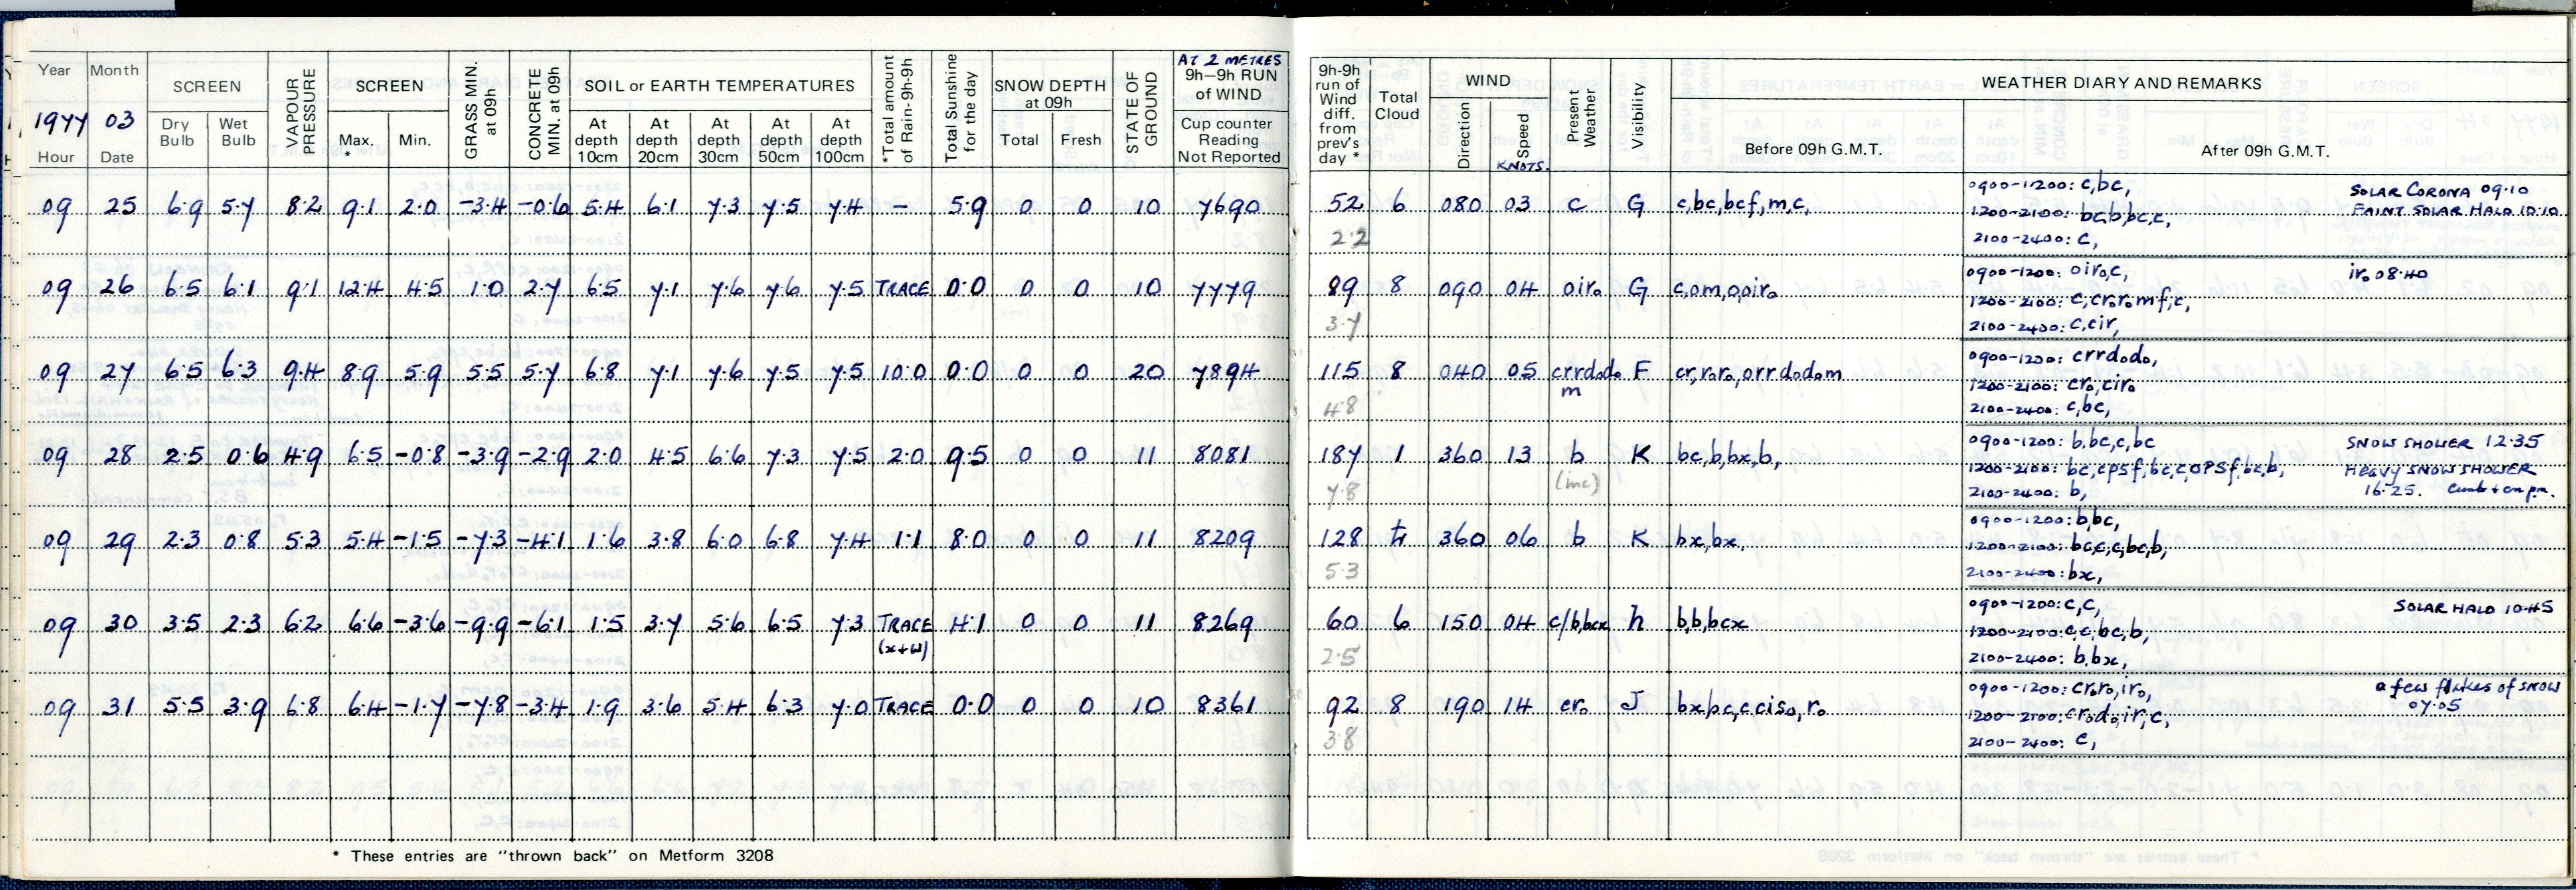 Year Month SCREEN VAPOUR PRESSURE SCREEN GRASS MIN. at 09h CONCRETE MIN. at 09h SOIL or EARTH TEMPERATURES *Total amount of Rain-9h-9h Total Sunshine for the day SNOW DEPTH at 09h STATE OF GROUND AT 2 METRES 9h–9h RUN of WIND
1977 03 Dry Bulb Wet Bulb Max. * Min. At depth 10cm At depth 20cm At depth 30cm At depth 50cm At depth 100cm Total Fresh Cup counter Reading Not Reported
Hour Date
9h-9h run of Wind diff. from prev's day * Total Cloud WIND Direction Speed KNOTS. Present Weather Visibility WEATHER DIARY AND REMARKS
Before 09h G.M.T. After 09h G.M.T.
09 25 6.9 5.7 8.2 9.1 2.0 -3.4 -0.6 5.4 6.1 7.3 7.5 7.4 – 5.9 0 0 10 7690 52 6 080 03 c G c,bc,bcf,m,c, 0900-1200: c,bc, SOLAR CORONA 09.10
1200-2100: bc,b,bc,c, FAINT SOLAR HALO 10.10
2.2 2100-2400: c,
09 26 6.5 6.1 9.1 12.4 4.5 1.0 2.7 6.5 7.1 7.6 7.6 7.5 TRACE 0.0 0 0 10 7779 89 8 090 04 oiro G c,om,o,oiro 0900-1200: oiro,c, iro 08.40
1200-2100: c,croromf,c,
3.7 2100-2400: c,cir,
09 27 6.5 6.3 9.4 8.9 5.9 5.5 5.7 6.8 7.1 7.6 7.5 7.5 10.0 0.0 0 0 20 7894 115 8 040 05 crrdodo F cr,roro,orrdodom 0900-1200: crrdodo,
m 1200-2100: cro,ciro
4.8 2100-2400: c,bc,
09 28 2.5 0.6 4.9 6.5 -0.8 -3.9 -2.9 2.0 4.5 6.6 7.3 7.5 2.0 9.5 0 0 11 8081 187 1 360 13 b K bc,b,bx,b, 0900-1200: b,bc,c,bc SNOW SHOWER 12.35
1200-2100: bc,cpsf,bc,c,opSf,bc,b, HEAVY SNOW SHOWER
7.8 (mc) 2100-2400: b, 16.25.
09 29 2.3 0.8 5.3 5.4 -1.5 -7.3 -4.1 1.6 3.8 6.0 6.8 7.4 1.1 8.0 0 0 11 8209 128 360 06 b K bx,bx, 0900-1200: b,bc,
1200-2100: bc,c,c,bc,b,
5.3 2100-2400: bx,
09 30 3.5 2.3 6.2 6.6 -3.6 -9.9 -6.1 1.5 3.7 5.6 6.5 7.3 TRACE 4.1 0 0 11 8269 60 6 150 04 c/b,bcx h b,b,bcx 0900-1200: c,c, SOLAR HALO 10.45
(x+w) 1200-2100: c,c,bc,b,
2.5 2100-2400: b,bx,
09 31 5.5 3.9 6.8 6.4 -1.7 -7.8 -3.4 1.9 3.6 5.4 6.3 7.0 TRACE 0.0 0 0 10 8361 92 8 190 14 cro J bx,bc,c,ciso,ro 0900-1200: croro,iro, a few flakes of snow
1200-2100: crodo,ir,c, 07.05
3.8 2100-2400: c,
* These entries are "thrown back" on Metform 3208